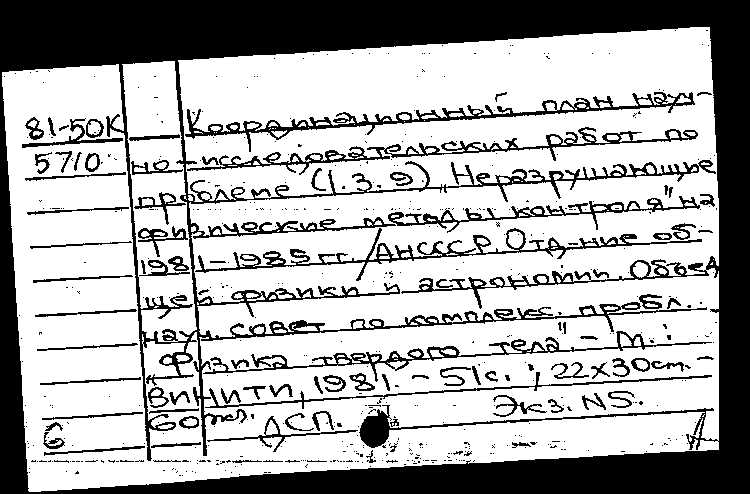 81-50К Координационный план науч-
5710 но-исследовательских работ по
проблеме (1.3.9) „Неразрушающие
физические методы контроля" на
1981-1985 гг. / АН СССР. Отд-ние об-
щей физики и астрономии. Объед.
науч. совет по комплекс. пробл.
„Физика твердого тела". - М.:
ВИНИТИ, 1981. - 51 с.; 22х30 см. -
60 экз. ДСП. Экз. N5.
6